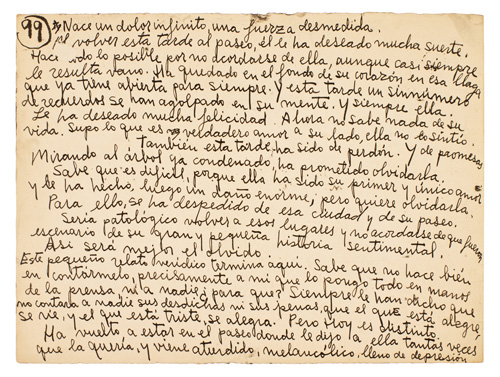 99
Nace un dolor infinito, una fuerza desmedida.
al volver esta tarde al paseo, él le ha deseado mucha suerte.
Hace todo lo posible por no acordarse de ella, aunque casi siempre
le resulta vano. Ha quedado en el fondo de su corazón en esa llaga
que ya tiene abierta para siempre. Y esta tarde un sinnúmero
de recuerdos se han agolpado en su mente. Y siempre ella.
Le ha deseado mucha felicidad. Ahora no sabe nada de su
vida. Supo lo que es verdadero amor a su lado, ella no lo sintió.
También esta tarde, ha sido de perdón. Y de promesas
Mirando al árbol ya condenado, ha prometido olvidarla.
Sabe que es difícil, porque ella ha sido su primer y único amor
y le ha hecho, luego un daño enorme, pero quiere olvidarla.
Para ello, se ha despedido de esa ciudad y de su paseo.
Sería patológico volver a esos lugares y no acordarse de que fueron
escenario de su gran y pequeña historia sentimental.
Así será mejor el olvido.
Este pequeño relato verídico termina aquí. Sabe que no hace bien
en contármelo, precisamente a mi que lo pongo todo en manos
de la prensa, ni a nadie, para que? Siempre le han dicho que
no contara a nadie sus desdichas ni sus penas, que el que está alegre
se ríe, y el que está triste, se alegra. Pero hoy es distinto
Ha vuelto a estar en el paseo donde le dijo a ella tantas veces
que la quería, y viene aturdido, melancólico, lleno de depresión